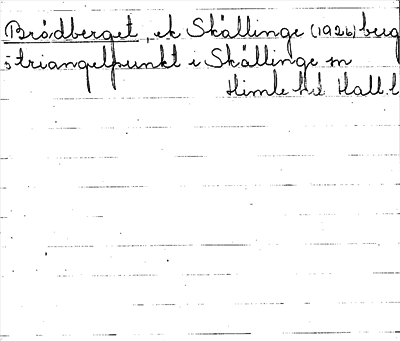 Brödberget, ek Skällinge (1926) berg
o triangelpunkt i Skällinge sn
Himle hd Hall.l